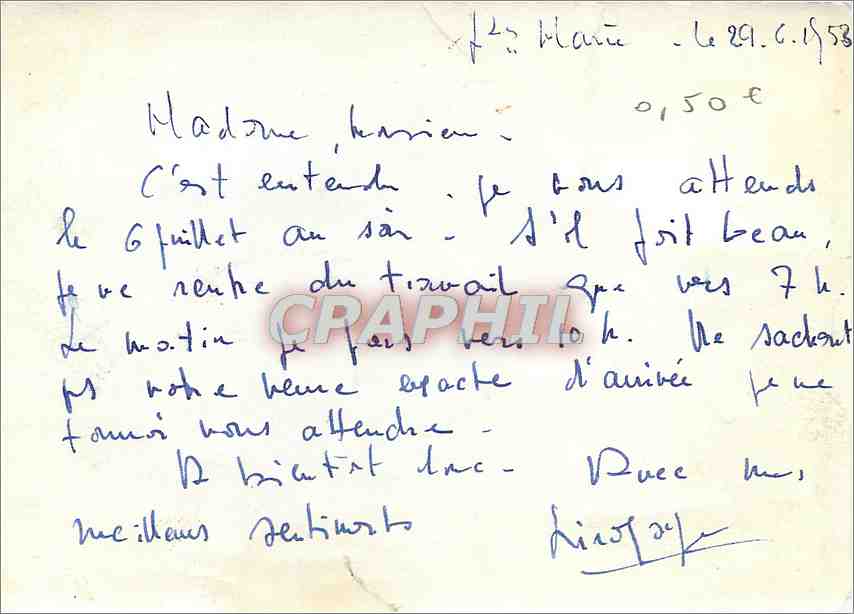 Stes Marie - le 29.6.1953
0,50 €
Madame, Monsieur -
C'est entendu . je vous attends
le 6 juillet au soir - S'il fait beau,
je ne rentre du travail que vers 7 h.
CPAPHIL
Le matin je pars vers 10 h. Ne sachant
pas votre heure exacte d'arrivée je ne
pourrai vous attendre -
A bientôt donc - Avec mes
meilleurs sentiments